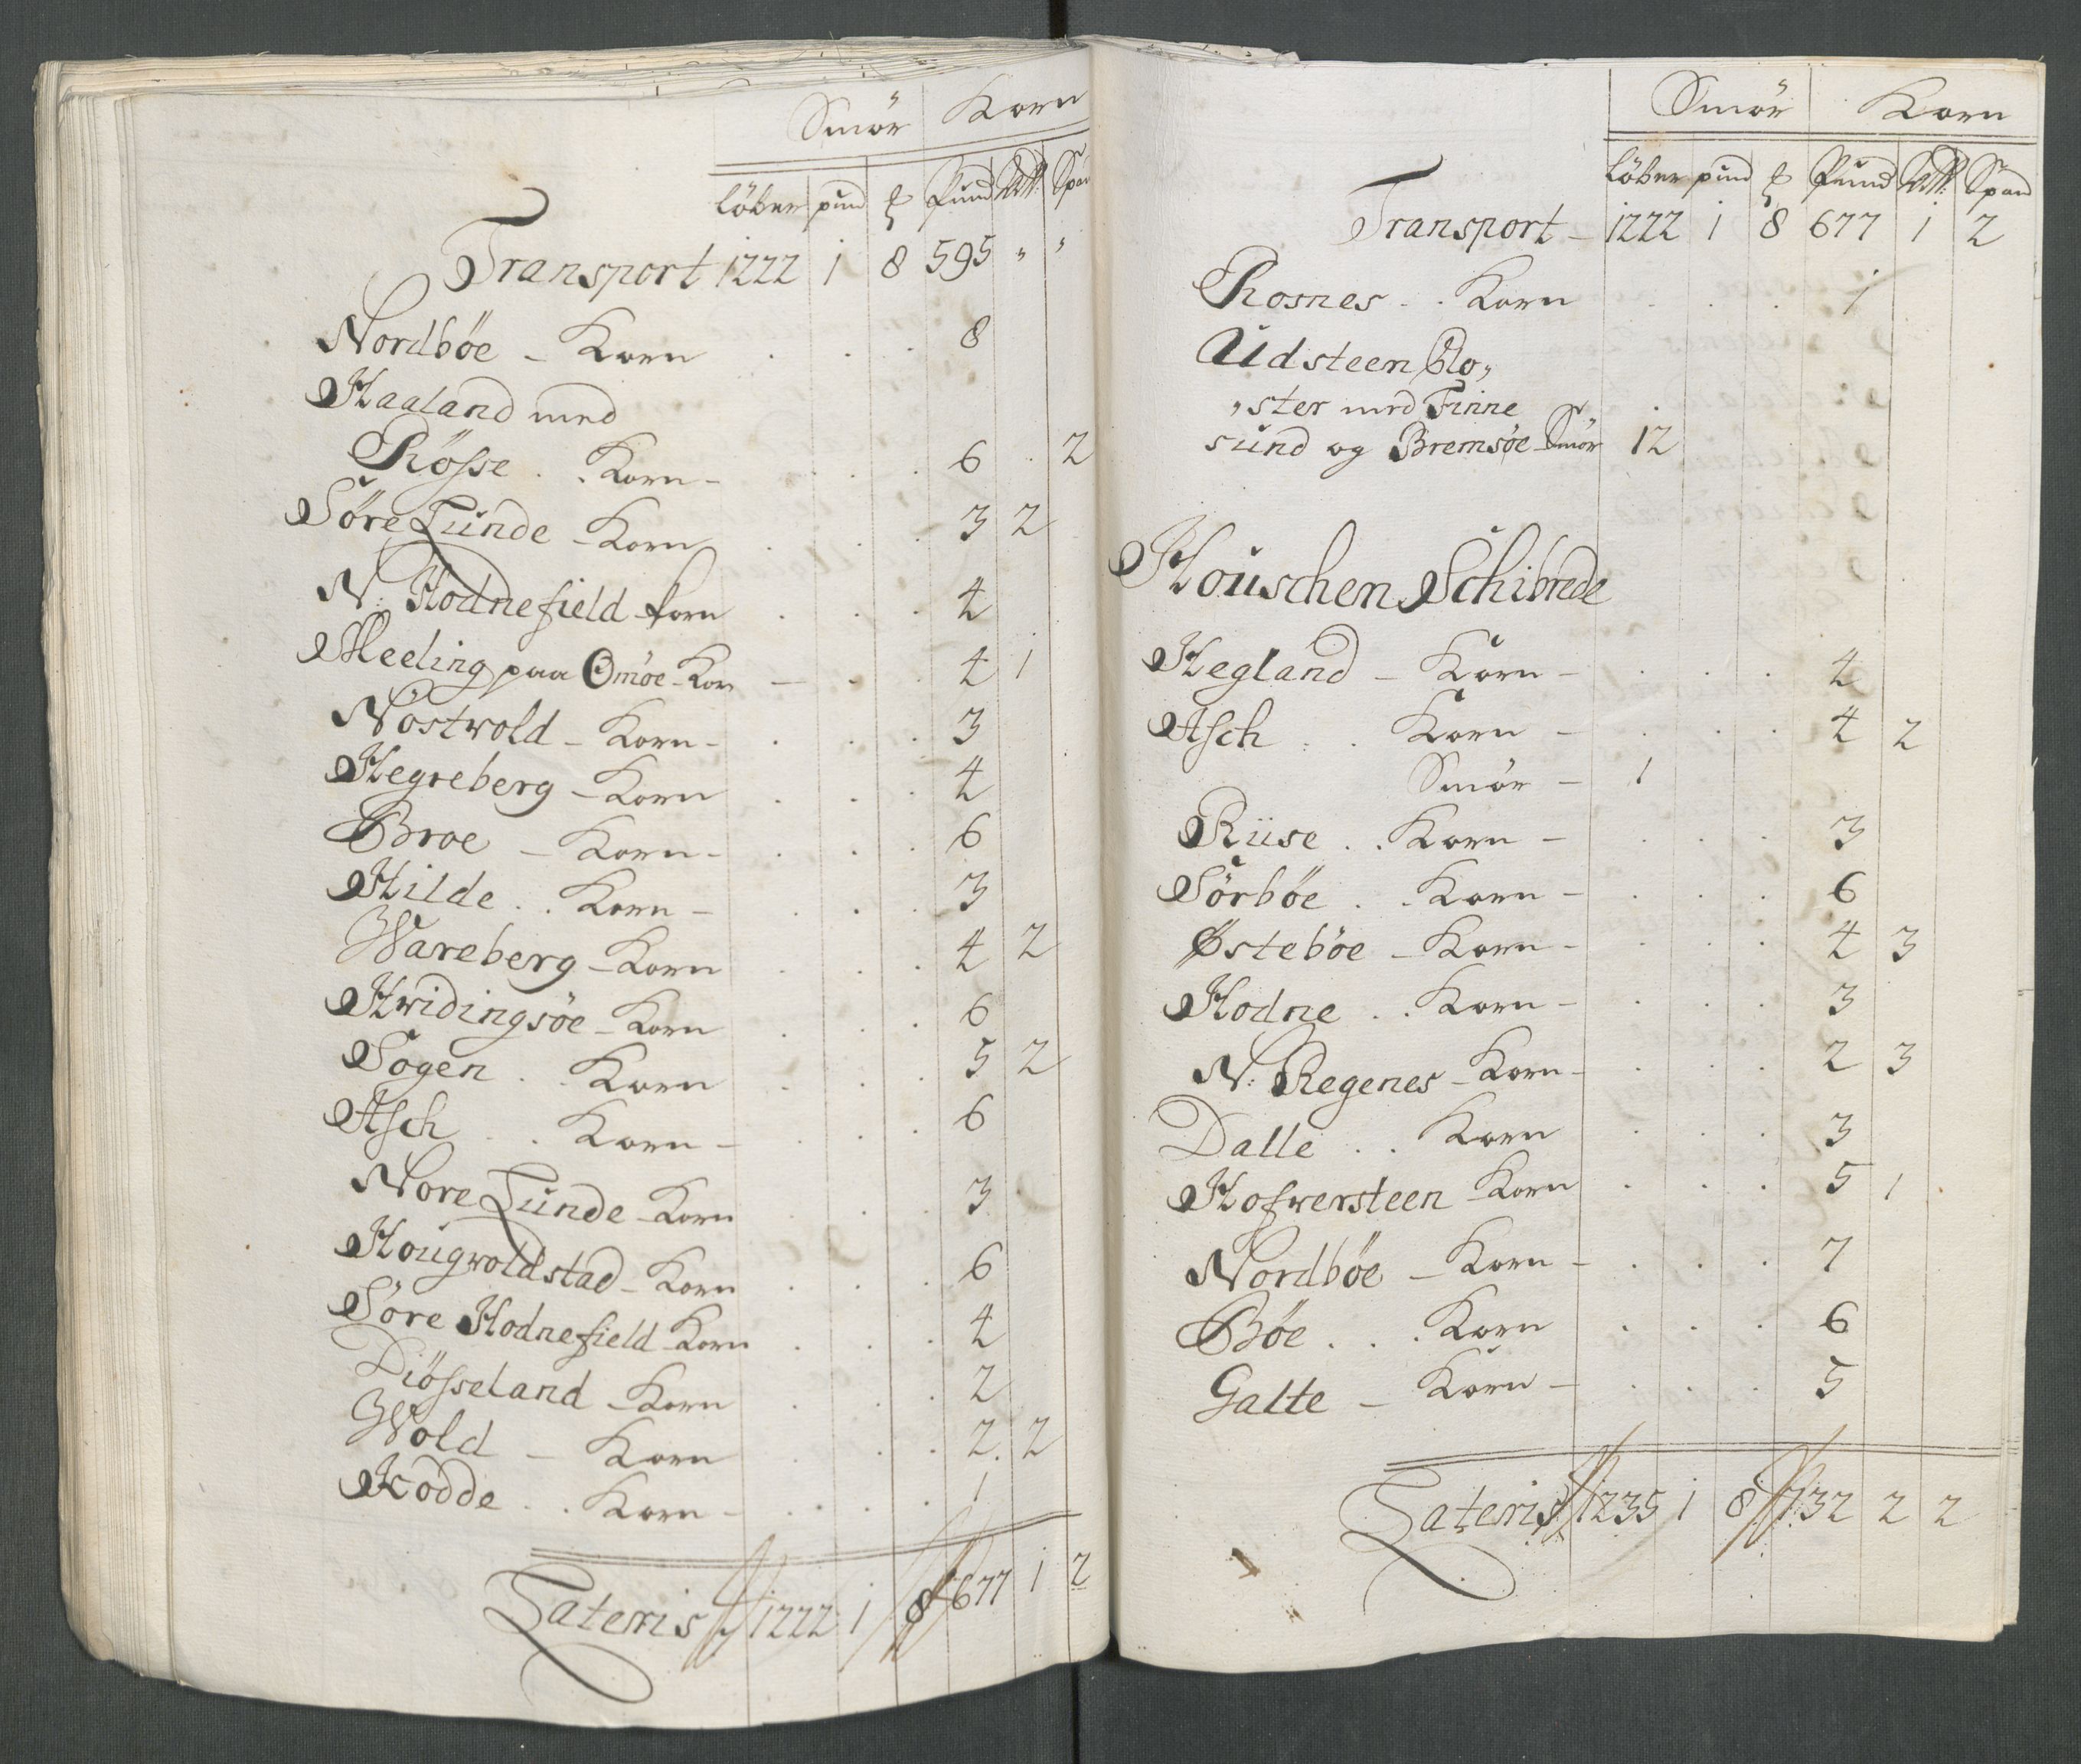 Smör Korn
löber pund ℔ Pund Mtt: Span
Transport 1222 1 8 595 " "
Nordböe - Korn . . . 8
Haaland med
Rösse . . Korn - . . . 6 . 2
Söre Lunde - Korn . . . 3 2
N: Hodnefield - Korn . . . 4
Meeling paa Omöe - Korn - . . 4 1
Nöstwold - Korn - . . . 3
Hegreberg - Korn . . . 4
Broe - Korn - . . . 6
Hilde . . Korn - . . . 3
Wareberg - Korn . . . 4 2
Hwidingsöe - Korn . . . 6
Sogen . . Korn . . . 5 2
Asch . . Korn - . . . 6
Nore Lunde - Korn . . . 3
Hougwoldstad - Korn . . . 6
Söre Hodnefield - Korn . . . 4
Diösseland - Korn . . . 2
Wold - Korn . . . 2. 2
Kodde . . Korn - . . . 1
Lateris 1222 1 8 677 1 2
Smör Korn
löber pund ℔ Pund Mtt: Spand
Transport - 1222 1 8 677 1 2
Rosnes . . Korn . . . 1
Udsteen Clo,
"ster med Finne
sund og Bremsöe - Smör 12
Houschen Schibrede
Hegland - Korn - . . . 4
Asch . . Korn - . . . 4 2
Smör - 1
Riise . . Korn - . . . 3
Sörböe . . Korn - . . . 6
Østeböe - Korn - . . . 4 3
Hodne . . Korn - . . . 3
N: Regenes - Korn - . . . 2 3
Dalle . . Korn . . . 3
Hofwersteen - Korn . . . 5 1
Nordböe - Korn - . . . 7
Böe . . . Korn . . . 6
Galte - Korn - . . . 5
Lateris 1235 1 8 732 2 2